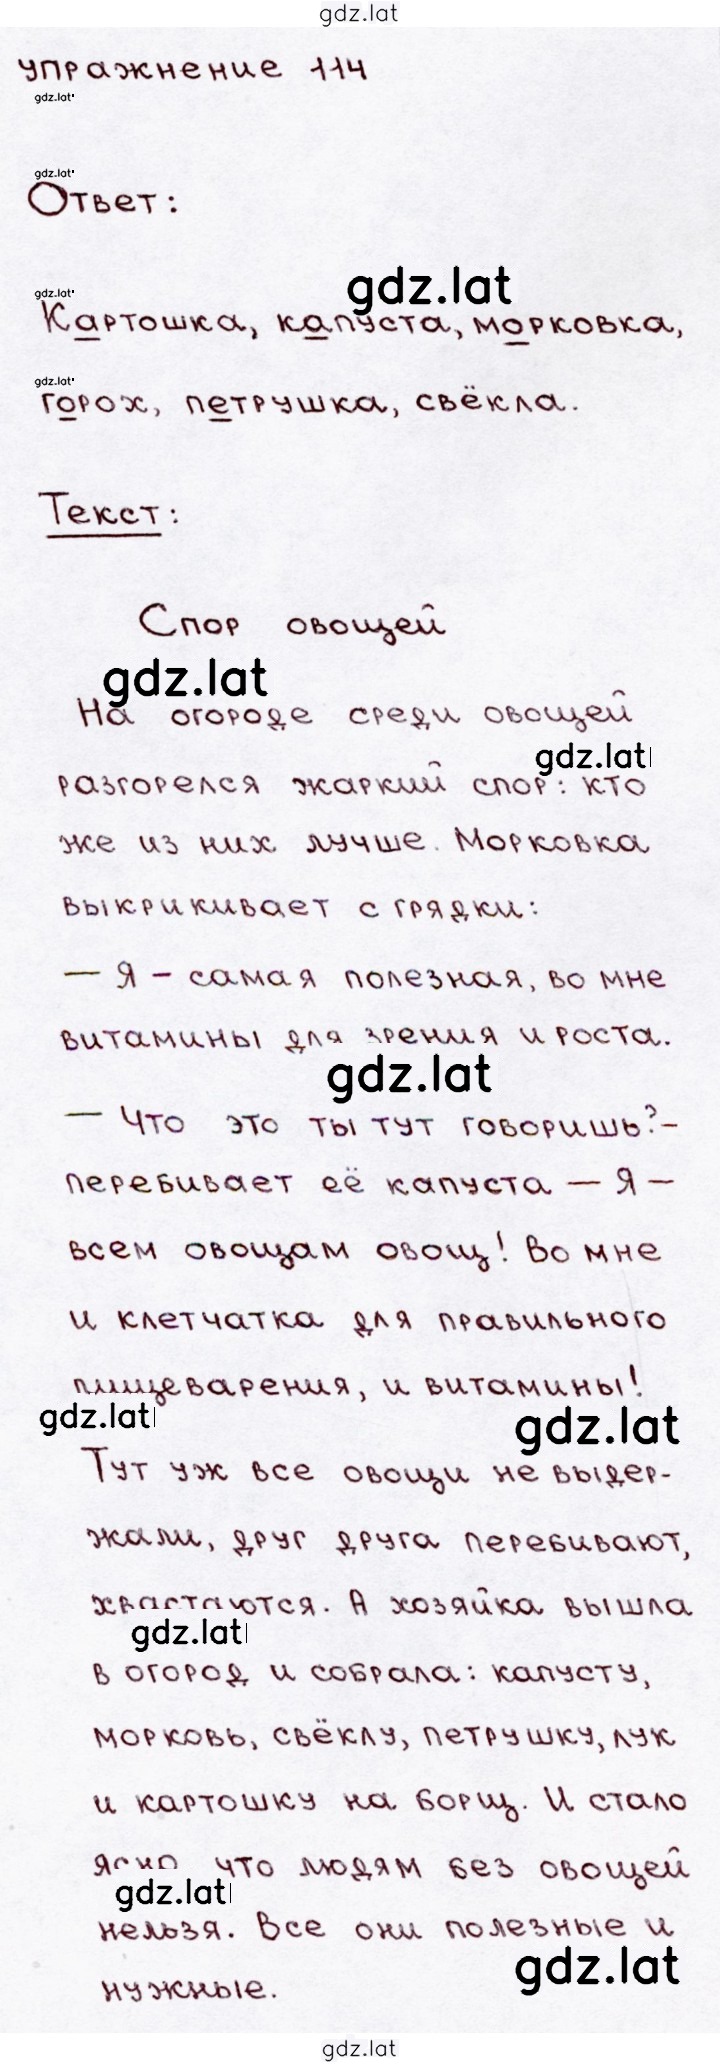 gdz.lat
упражнение 114
gdz.lat
gdz.lat
Ответ:
gdz.lat
gdz.lat
Картошка, капуста, морковка,
gdz.lat
горох, петрушка, свёкла.
Текст:
Спор овощей
gdz.lat
На огороде среди овощей
gdz.lat
разгорелся жаркий спор: кто
же из них лучше. Морковка
выкрикивает с грядки:
— Я – самая полезная, во мне
витамины для зрения и роста.
gdz.lat
— Что это ты тут говоришь? –
перебивает её капуста — Я —
всем овощам овощ! Во мне
и клетчатка для правильного
пищеварения, и витамины!
gdz.lat
gdz.lat
Тут уж все овощи не выдер-
жали, друг друга перебивают,
хвастаются. А хозяйка вышла
gdz.lat
в огород и собрала: капусту,
морковь, свёклу, петрушку, лук
и картошку на борщ. И стало
ясно что людям без овощей
gdz.lat
нельзя. Все они полезные и
gdz.lat
нужные.
gdz.lat